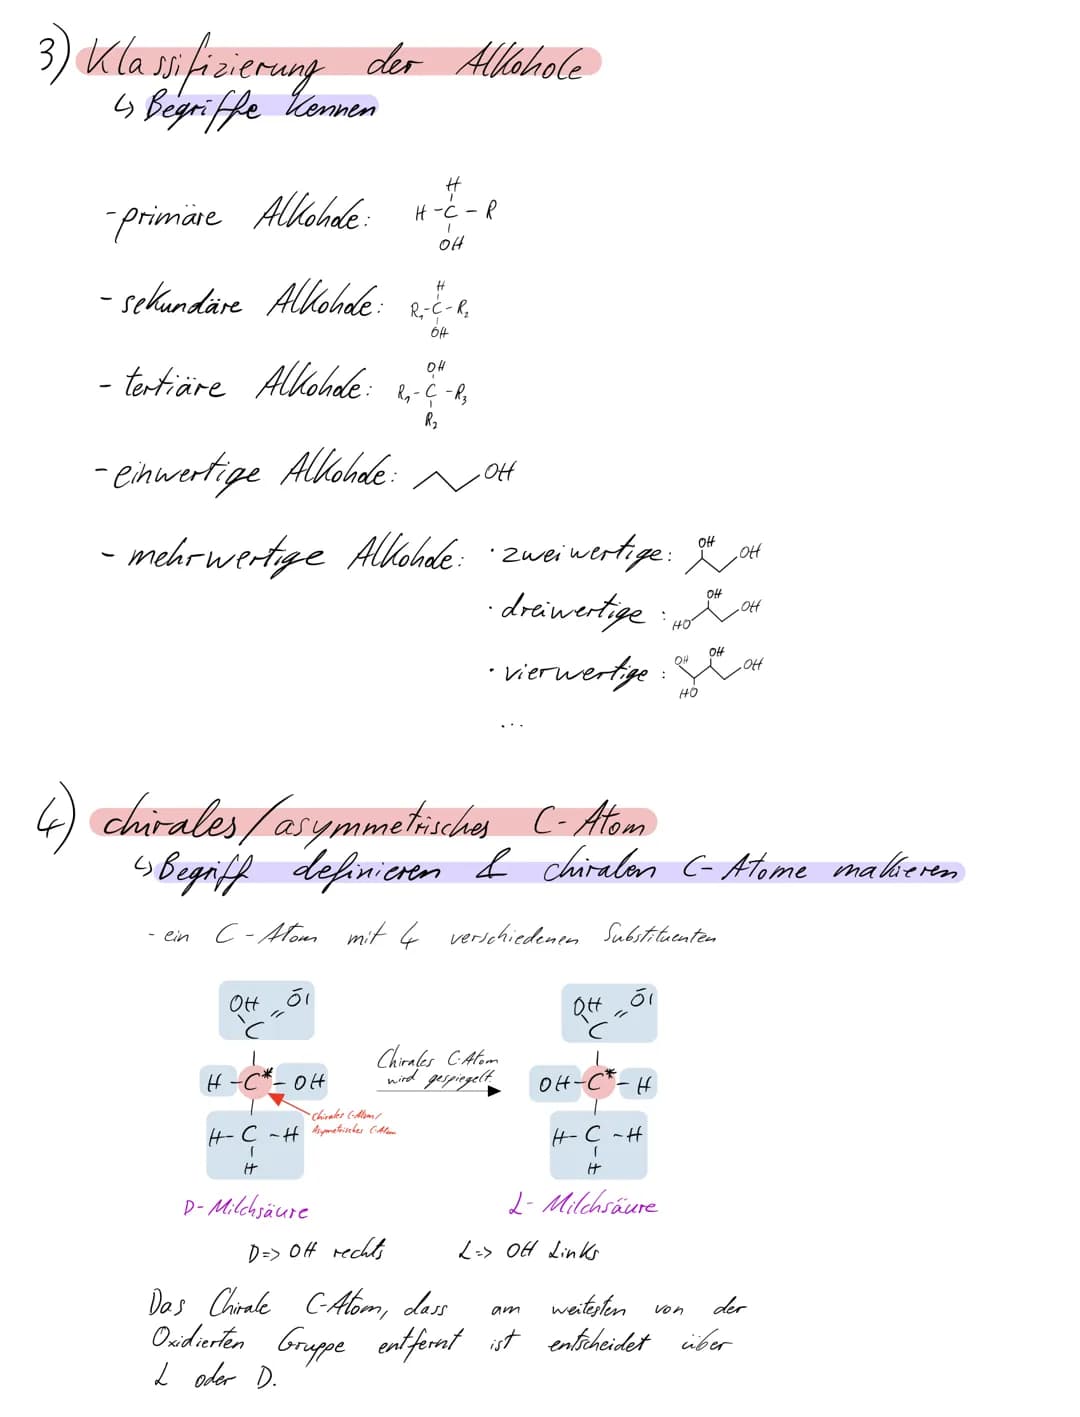 3) Klassifizierung der Alkohole
↳ Begriffe kennen
- primäre Alkohole:
H
H - C - R
OH
- sekundäre Alkohole:
H
R₁ - C - R₂
OH
- tertiäre Alkohole:
OH
R₁ - C - R₃
R₂
- einwertige Alkohole: OH
- mehrwertige Alkohole: · zweiwertige: OH OH
· dreiwertige : HO OH OH
· vierwertige : OH OH OH HO
...
4) chirales/asymmetrisches C-Atom
↳ Begriff definieren & chiralen C-Atome makieren
- ein C-Atom mit 4 verschiedenen Substituenten
OH O
C
H - C* - OH
Chirales C-Atom/
Asymetrisches C-Atom
H - C - H
H
D-Milchsäure
Chirales C-Atom
wird gespiegelt
OH O
C
OH - C* - H
H - C - H
H
L-Milchsäure
D => OH rechts L => OH Links
Das Chirale C-Atom, dass am weitesten von der
Oxidierten Gruppe entfernt ist entscheidet über
L oder D.